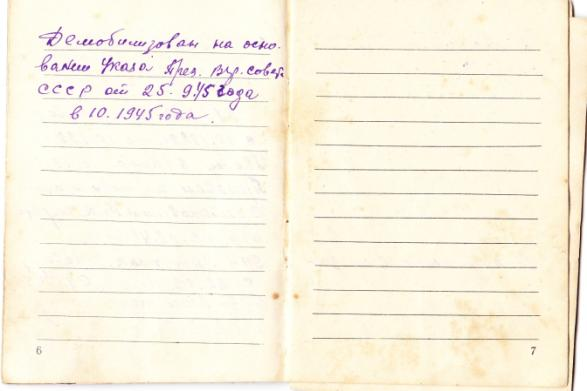 Демобилизован на осно-
вании Указа През. Вер. совета
СССР от 25. 9.45 года
в 10. 1945 года.
6
7